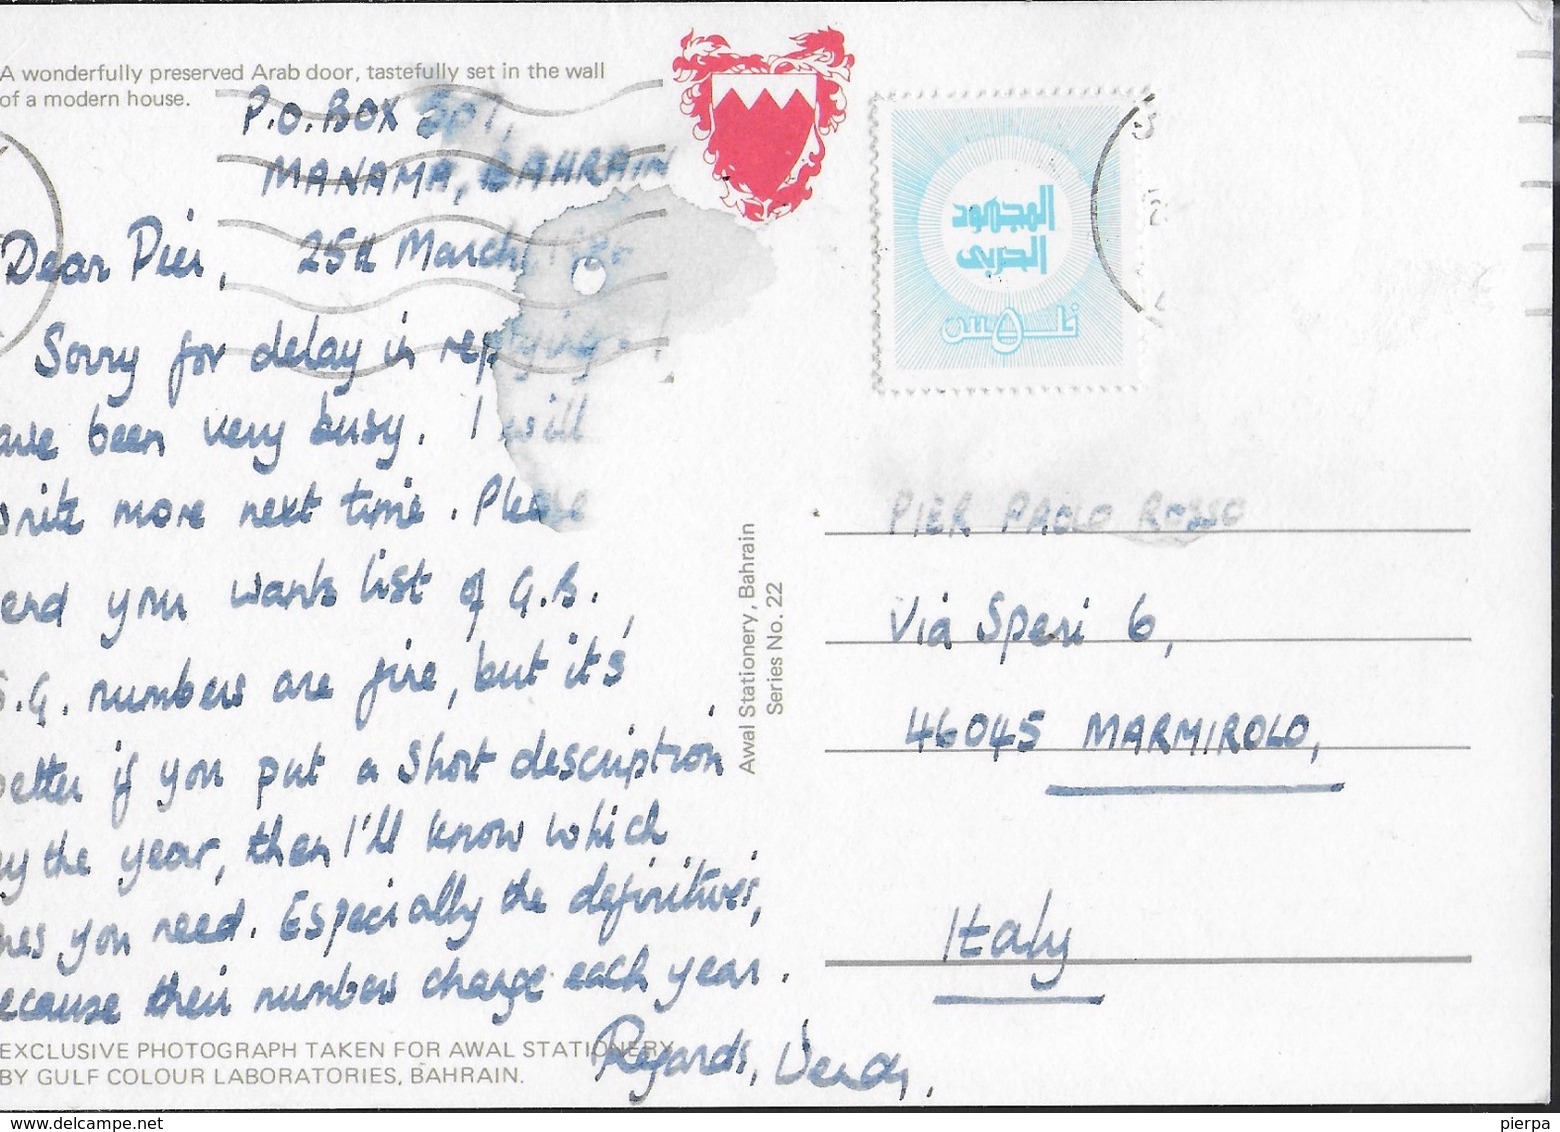 A wonderfully preserved Arab door, tastefully set in the wall
of a modern house.
P.O. BOX
MANAMA, BAHRAIN
25th March,
Dear Pier,
Sorry for delay in replying. I
ave been very busy. I will
write more next time. Please
end your wants list of G.B.,
S.G. numbers are fine, but it's
better if you put a short description
by the year, then I'll know which
nes you need. Especially the definitives,
ecause their numbers change each year.
Regards, Wendy.
EXCLUSIVE PHOTOGRAPH TAKEN FOR AWAL STATIONERY
BY GULF COLOUR LABORATORIES, BAHRAIN.
Awal Stationery, Bahrain
Series No. 22
المجهود
الحربي
٥ فلوس
PIER PAOLO ROSSO
Via Speri 6,
46045 MARMIROLO,
Italy
pierpa